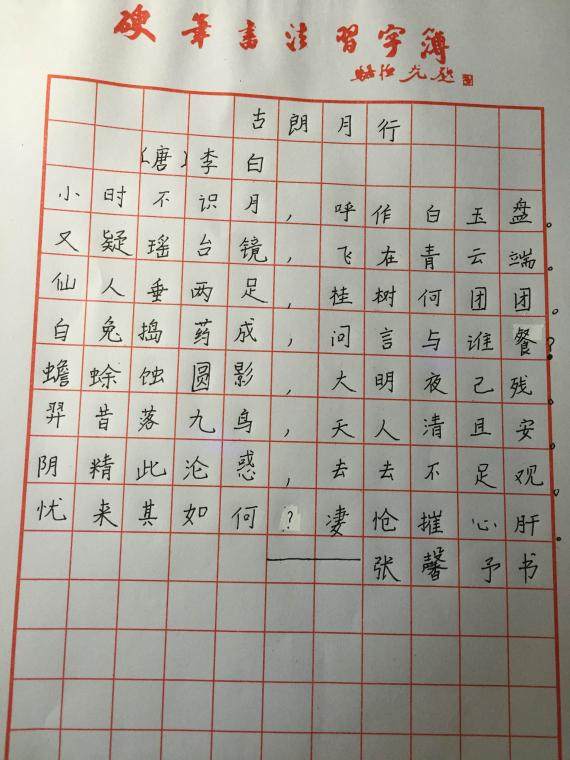 硬筆書法習字簿
古朗月行
(唐)李白
小时不识月,呼作白玉盘。
又疑瑶台镜,飞在青云端。
仙人垂两足,桂树何团团。
白兔捣药成,问言与谁餐?
蟾蜍蚀圆影,大明夜己残。
羿昔落九鸟,天人清且安。
阴精此沦惑,去去不足观。
忧来其如何?凄怆摧心肝。
——张馨予书